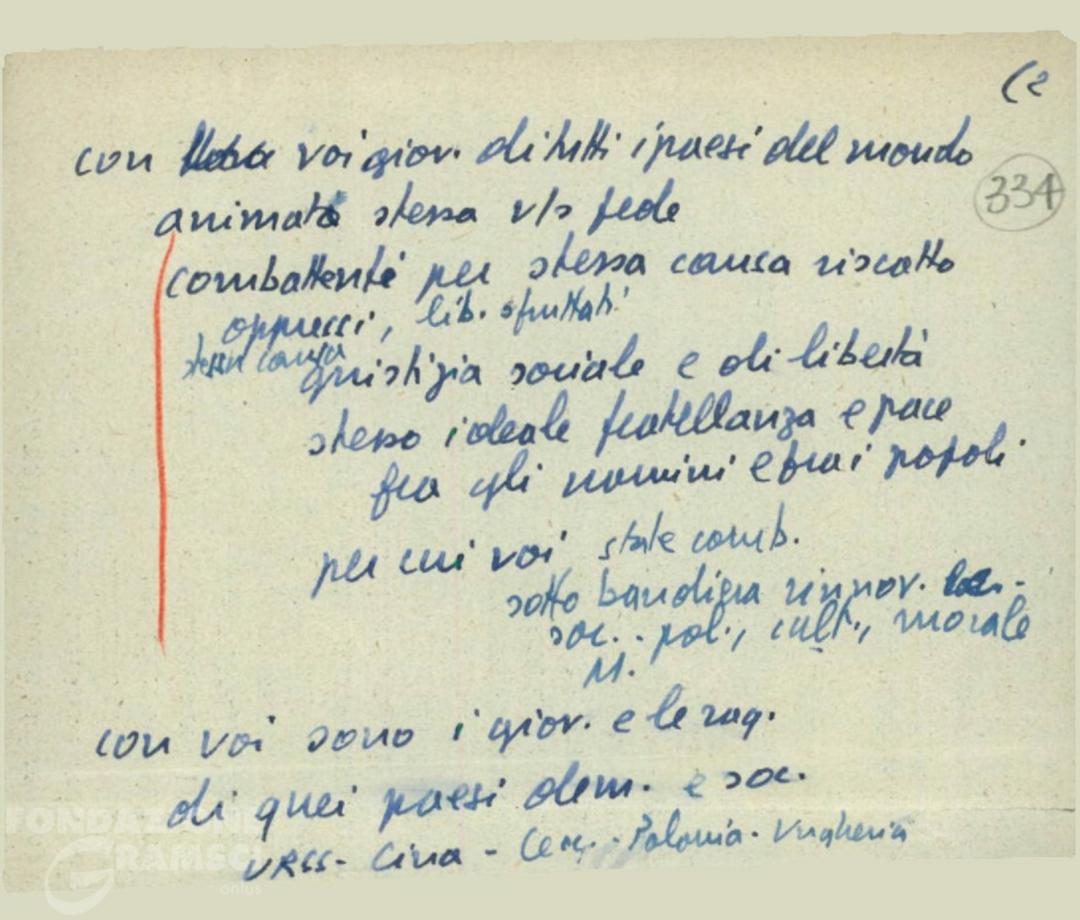 (2
con voi giov. di tutti i paesi del mondo
334
animati stessa v/s fede
combattenti per stessa causa riscatto
oppressi, lib. sfruttati
stessa causa
giustizia sociale e di libertà
stesso ideale fratellanza e pace
fra gli uomini e fra i popoli
per cui voi state comb.
sotto bandiera rinnov.
soc. - pol., cult., morale
con voi sono i giov. e le rag.
di quei paesi dem. e soc.
URSS - Cina - Cec. - Polonia - Ungheria
FONDAZIONE
GRAMSCI
onlus